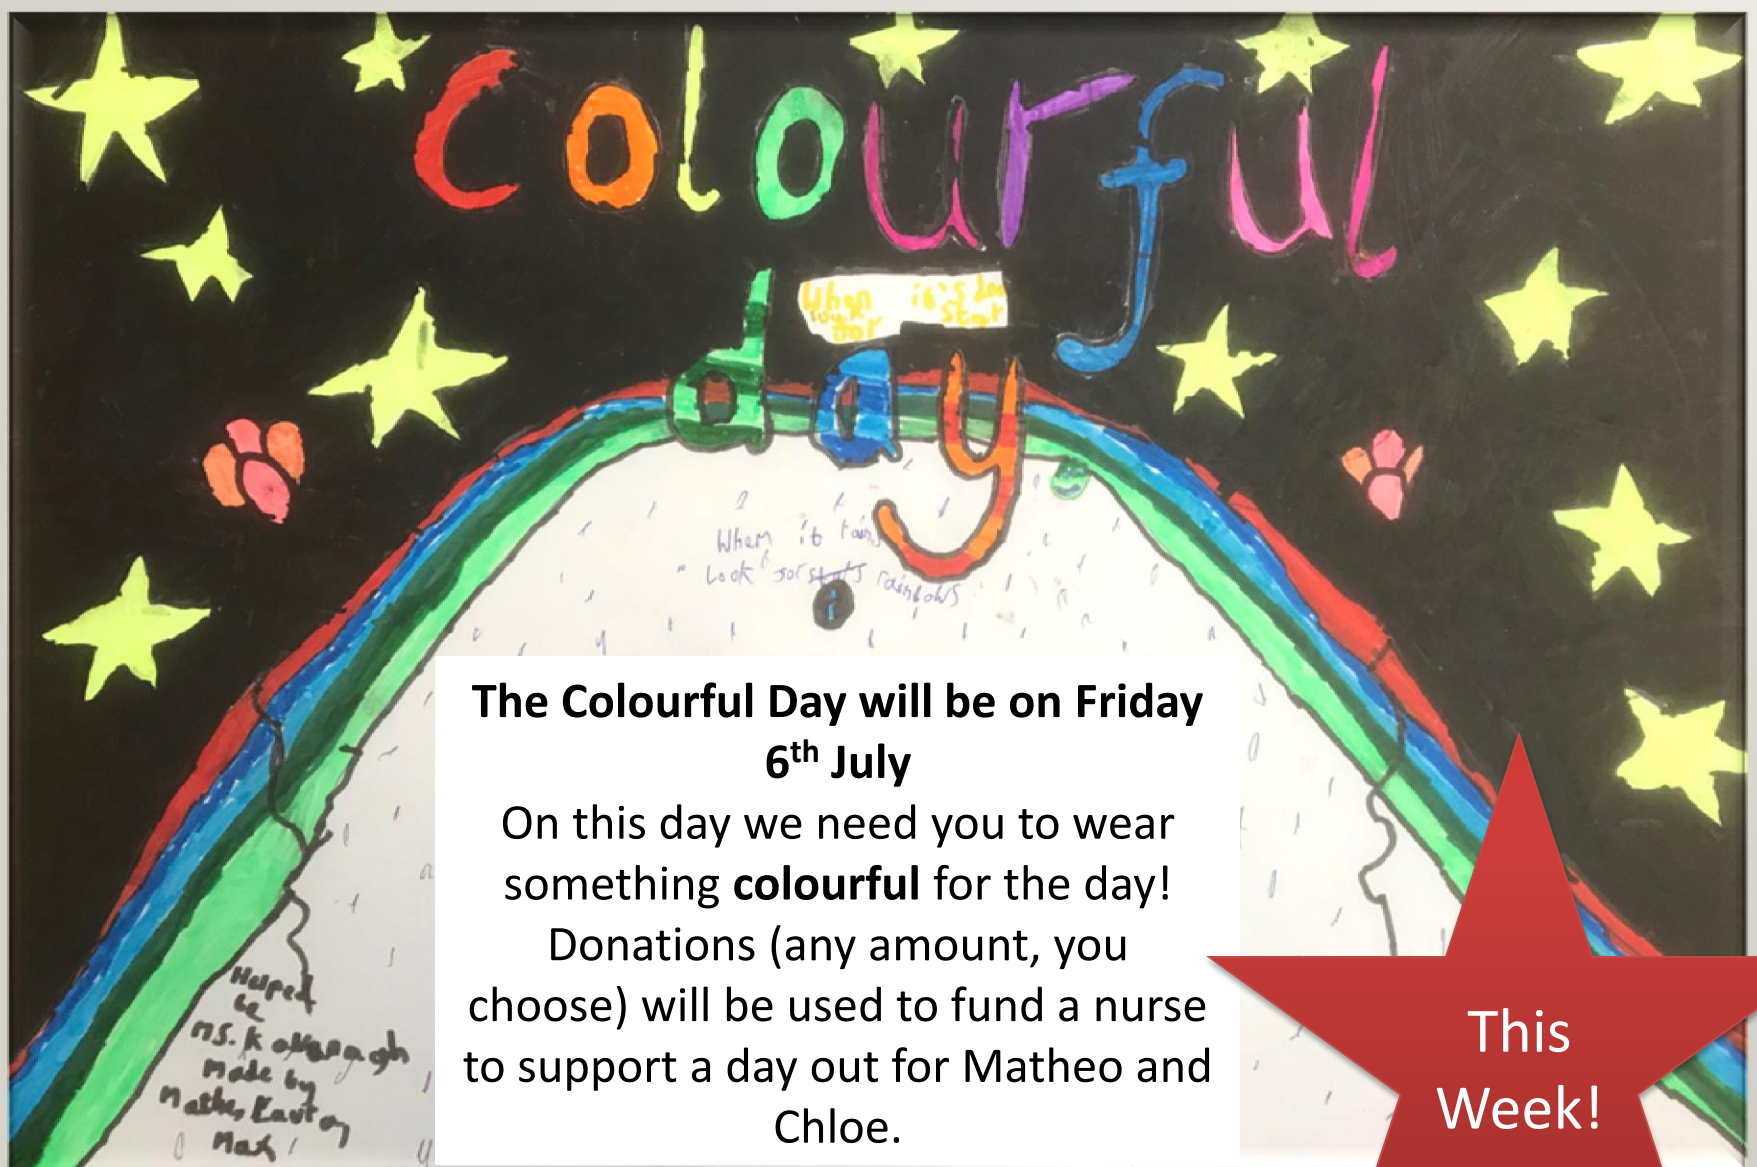 Colourful
When it's
look
for
day
When it rains
Look for stars rainbows
The Colourful Day will be on Friday
6th July
On this day we need you to wear
something colourful for the day!
Donations (any amount, you
choose) will be used to fund a nurse
to support a day out for Matheo and
Chloe.
Helped
be
MS. Kavanagh
Made by
This
Week!